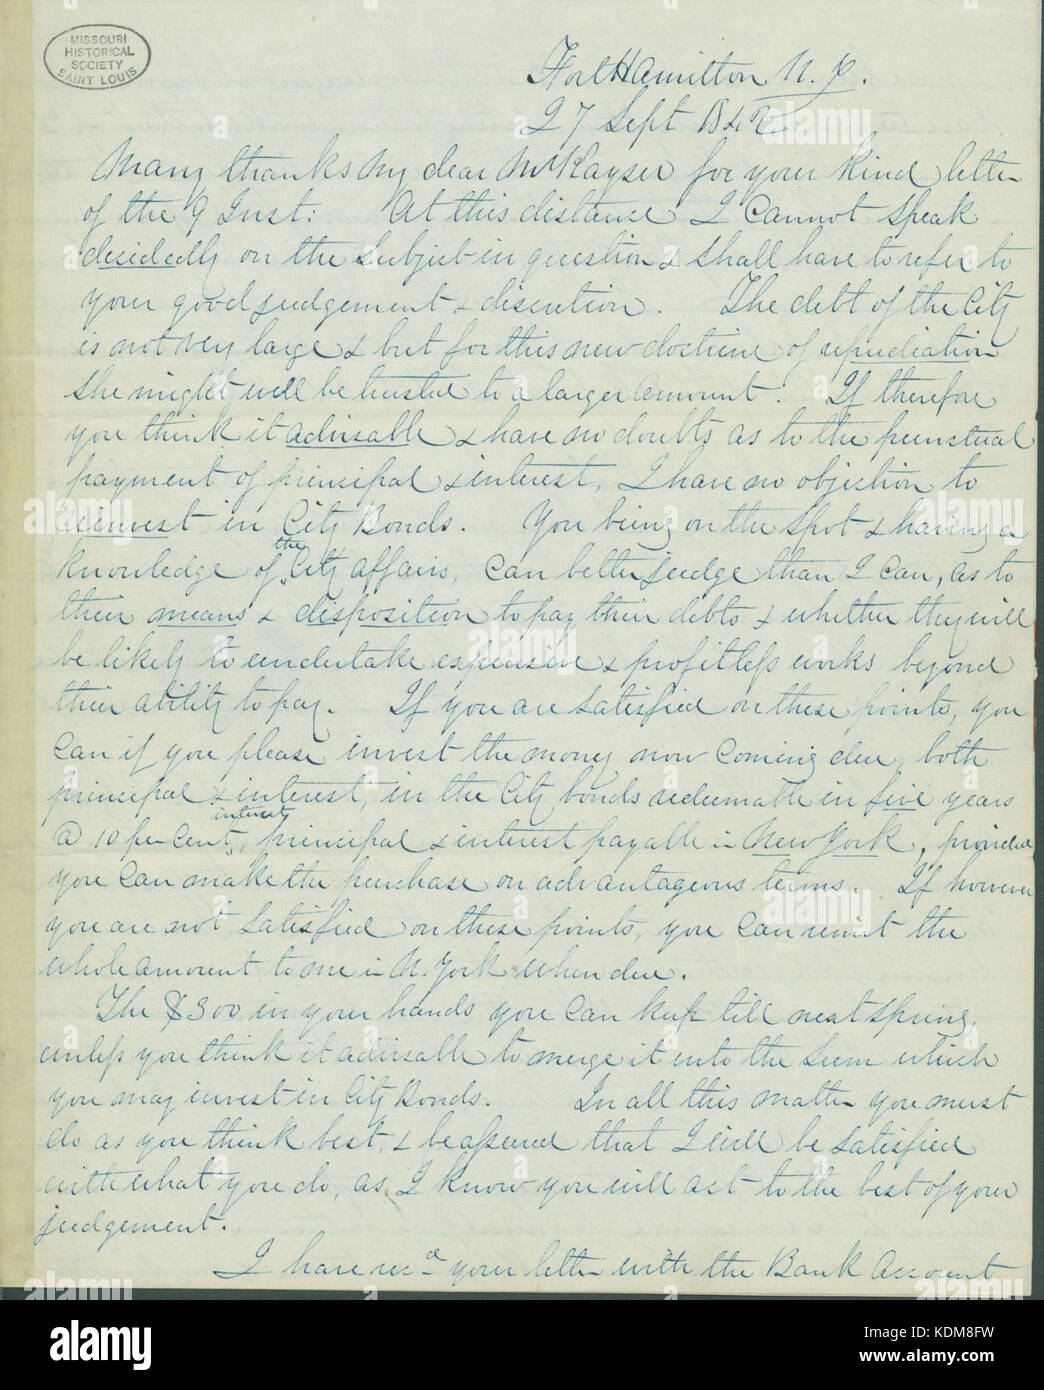 MISSOURI
HISTORICAL
SOCIETY
SAINT LOUIS
Fort Hamilton N. Y.
27 Sept 1842
Many thanks my dear Mr Kayser for your kind letter
of the 9 Inst: At this distance I cannot speak
decidedly on the subject in question & shall have to refer to
your good judgement & discretion. The debt of the City
is not very large & but for this new doctrine of repudiation
she might well be trusted to a larger amount. If therefore
you think it advisable & have no doubts as to the punctual
payment of principal & interest, I have no objection to
reinvest in City Bonds. You being on the spot & having a
knowledge of the City affairs, can better judge than I can, as to
their means & disposition to pay their debts & whether they will
be likely to undertake expensive & profitless works beyond
their ability to pay. If you are satisfied on these points, you
can if you please invest the money now coming due, both
principal & interest, in the City bonds redeemable in five years
@ 10 per cent interest, principal & interest payable in New York, provided
you can make the purchase on advantageous terms. If however
you are not satisfied on these points, you can remit the
whole amount to me in N. York when due.
The $300 in your hands you can keep till next spring,
unless you think it advisable to merge it into the sum which
you may invest in City Bonds. In all this matter you must
do as you think best, & be assured that I will be satisfied
with what you do, as I know you will act to the best of your
judgement.
I have recd your letter with the Bank Account
alamy
KDM8FW
www.alamy.com